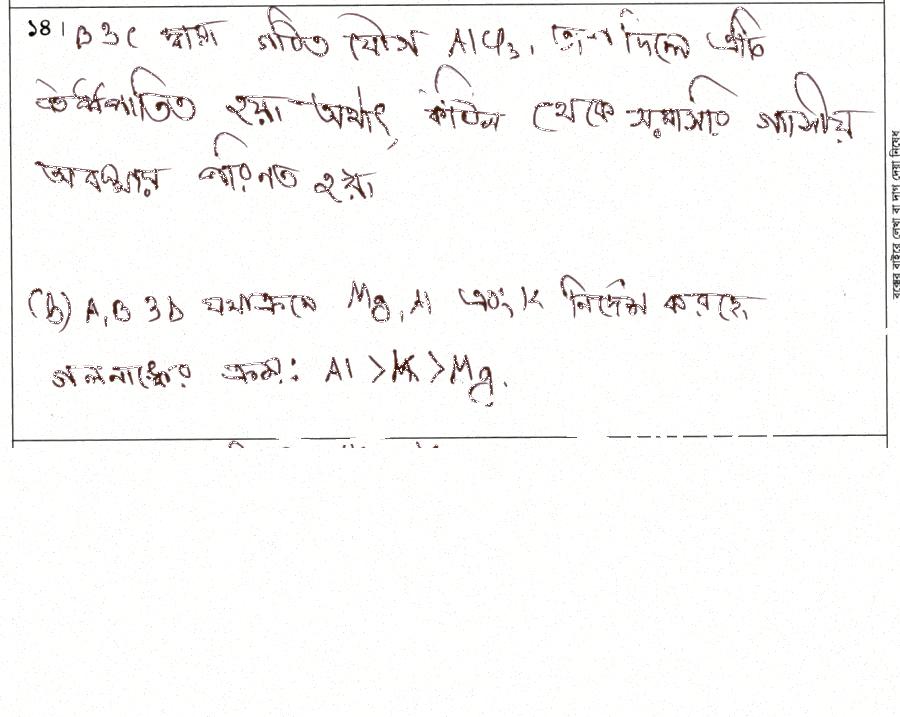 ১৪। B ও C দ্বারা গঠিত যৌগ AlCl₃, তাপ দিলে এটি
উর্ধ্বপাতিত হয়। অর্থাৎ কঠিন থেকে সরাসরি গ্যাসীয়
অবস্থায় পরিণত হয়।
(b) A, B ও D যথাক্রমে Mg, Al এবং K নির্দেশ করছে,
গলনাঙ্কের ক্রম: Al > K > Mg.
বক্সের বাইরে লেখা বা দাগ দেয়া নিষেধ